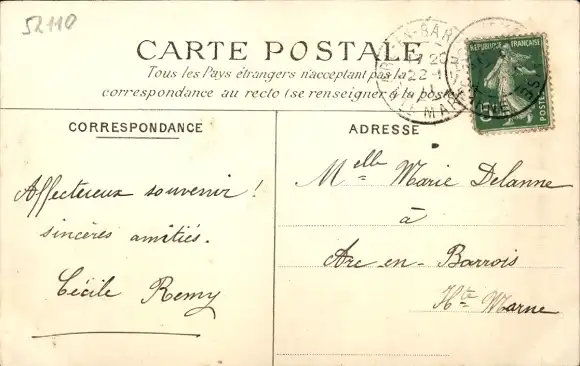 52110
CARTE POSTALE
Tous les Pays étrangers n'acceptent pas la
correspondance au recto (se renseigner à la poste)
RÉPUBLIQUE FRANÇAISE
POSTES
5
ARC-EN-BAR
17 20
22-11
CORRESPONDANCE
Affectueux souvenir !
sincères amitiés.
Cécile Remy
ADRESSE
Melle Marie Delanne
à
Arc-en-Barrois
Hte Marne